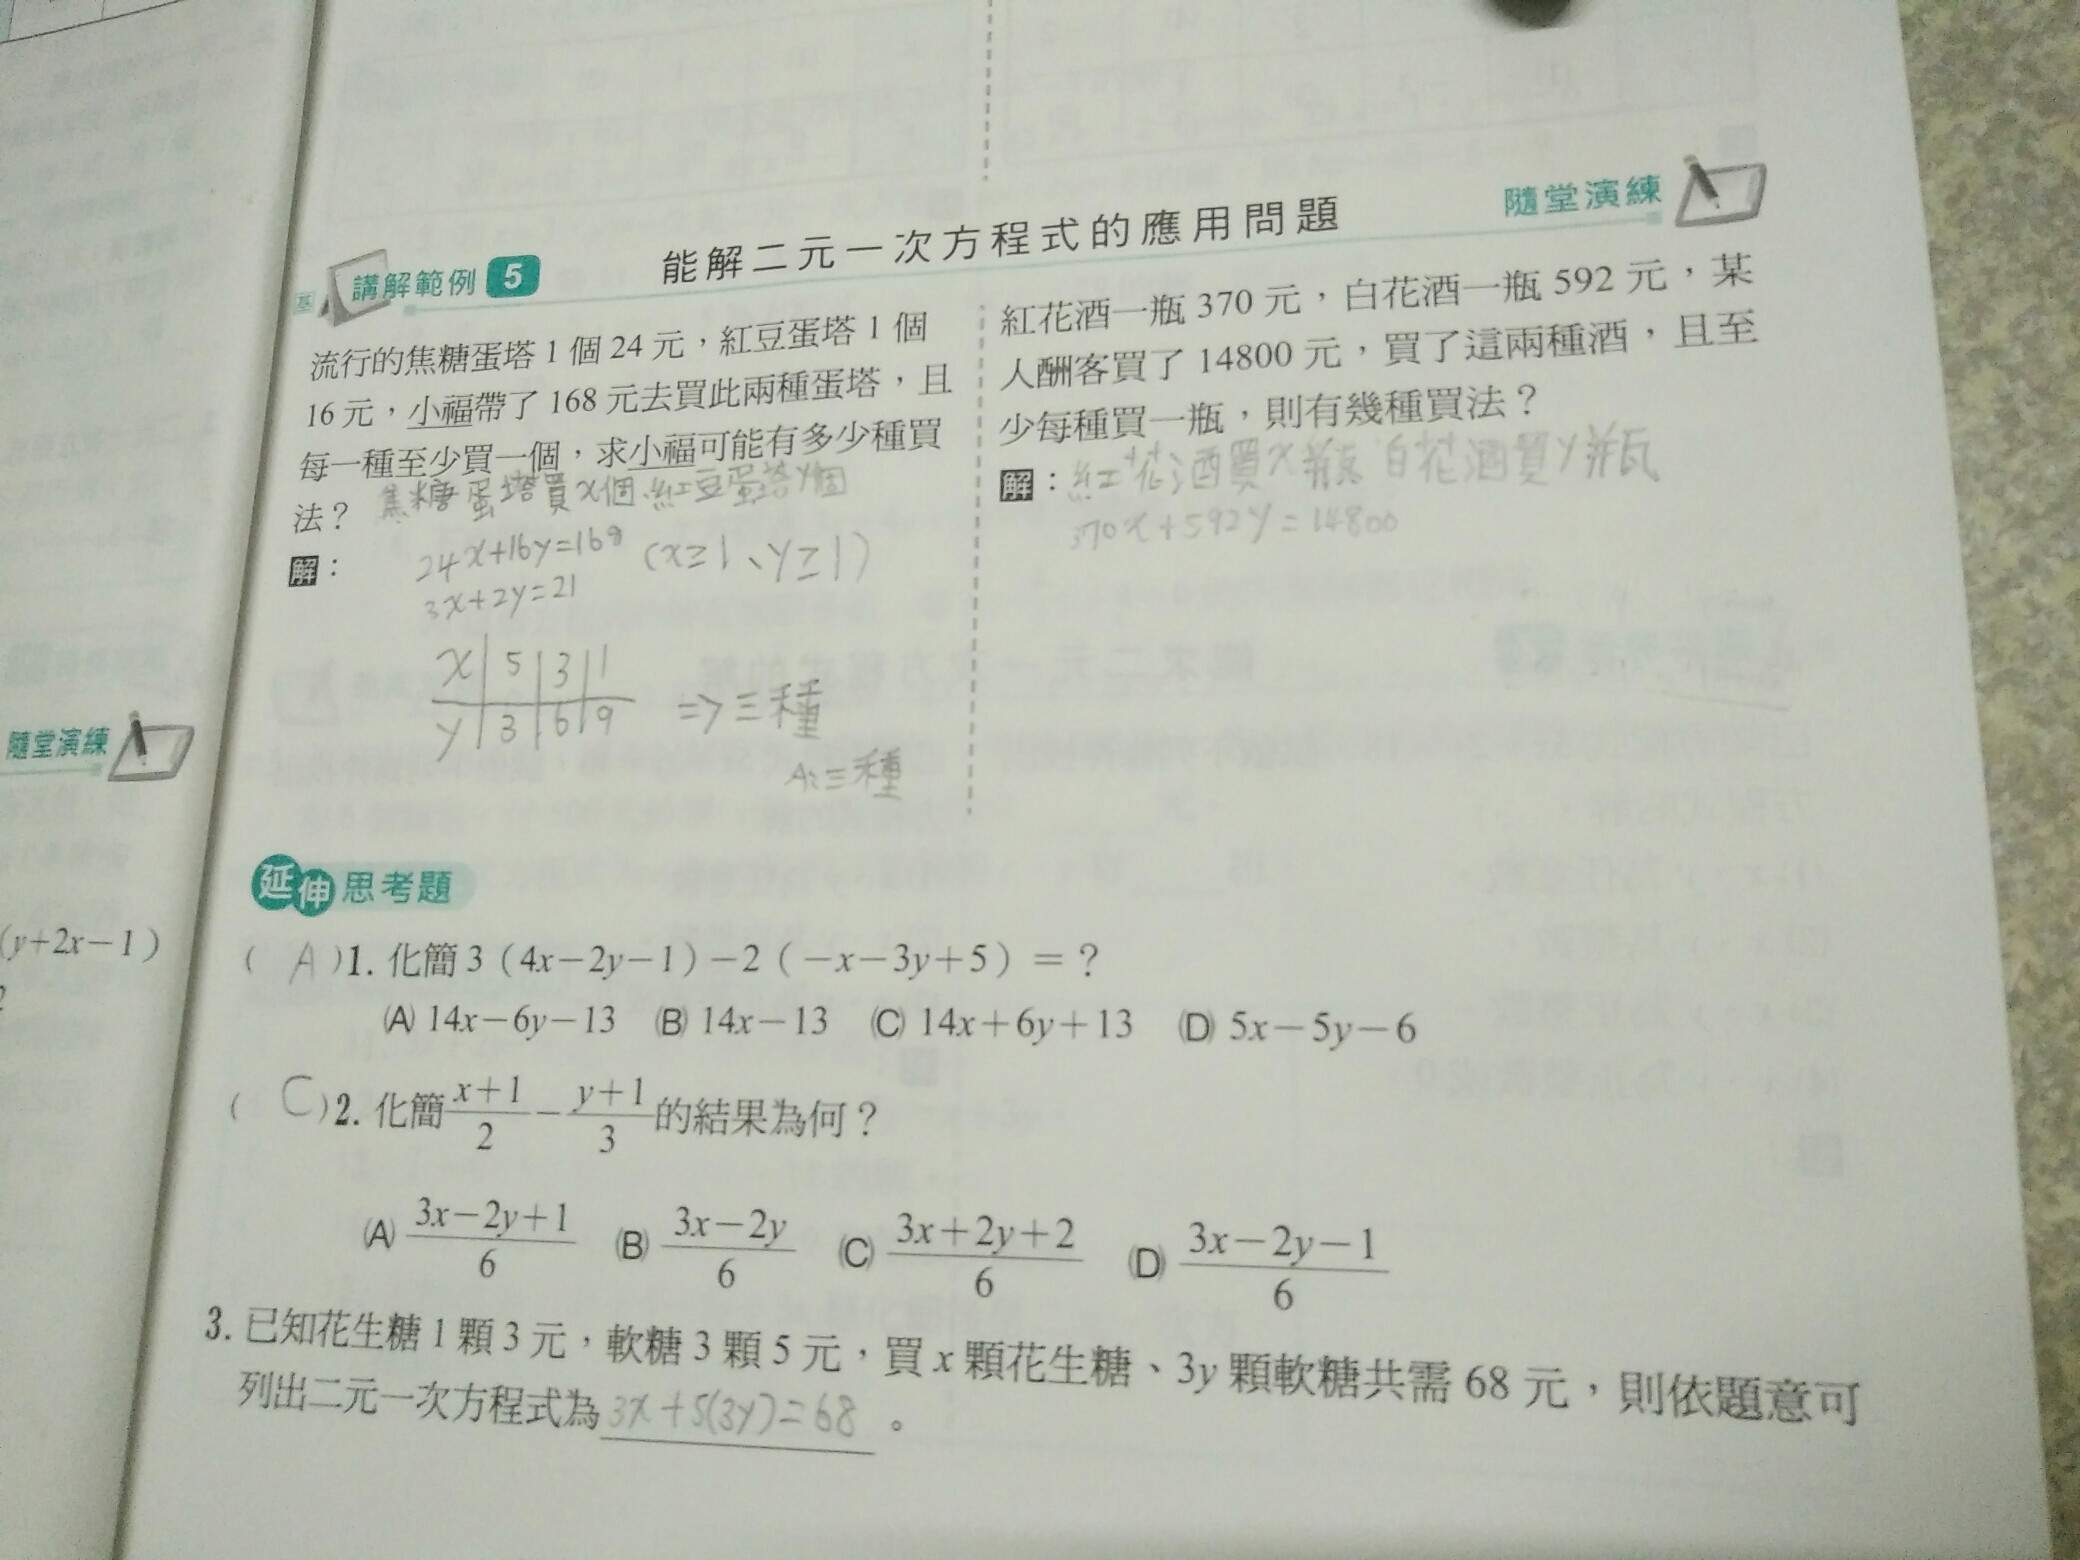 能解二元一次方程式的應用問題
隨堂演練
基 講解範例 5
流行的焦糖蛋塔1個24元,紅豆蛋塔1個
16元,小福帶了168元去買此兩種蛋塔,且
每一種至少買一個,求小福可能有多少種買
法?
焦糖蛋塔買x個、紅豆蛋塔y個
解:
24x+16y=168 (x≥1、y≥1)
3x+2y=21
x 5 3 1
y 3 6 9
⇒三種
A:三種
紅花酒一瓶370元,白花酒一瓶592元,某
人酬客買了14800元,買了這兩種酒,且至
少每種買一瓶,則有幾種買法?
解:紅花酒買x瓶 白花酒買y瓶
370x+592y=14800
隨堂演練
(y+2x-1)
延伸思考題
( A )1. 化簡3(4x-2y-1)-2(-x-3y+5)=?
(A) 14x-6y-13 (B) 14x-13 (C) 14x+6y+13 (D) 5x-5y-6
( C )2. 化簡 (x+1)/2 - (y+1)/3 的結果為何?
(A) (3x-2y+1)/6 (B) (3x-2y)/6 (C) (3x+2y+2)/6 (D) (3x-2y-1)/6
3. 已知花生糖1顆3元,軟糖3顆5元,買x顆花生糖、3y顆軟糖共需68元,則依題意可
列出二元一次方程式為3x+5(3y)=68。